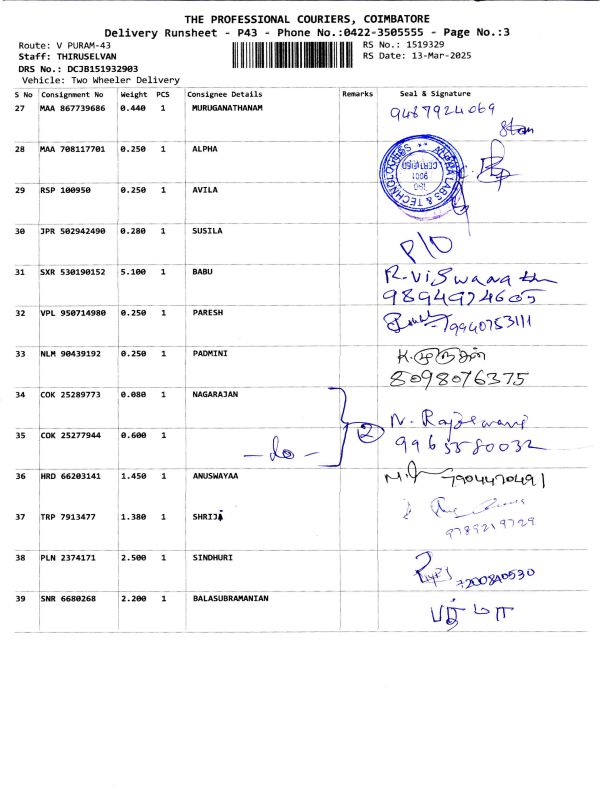 THE PROFESSIONAL COURIERS, COIMBATORE
Delivery Runsheet - P43 - Phone No.:0422-3505555 - Page No.:3
Route: V PURAM-43 RS No.: 1519329
Staff: THIRUSELVAN RS Date: 13-Mar-2025
DRS No.: DCJB151932903
Vehicle: Two Wheeler Delivery
S No Consignment No Weight PCS Consignee Details Remarks Seal & Signature
27 MAA 867739686 0.440 1 MURUGANATHANAM 9467924069
28 MAA 708117701 0.250 1 ALPHA
29 RSP 100950 0.250 1 AVILA
LABS & TECHNOLOGIES
ISO
9001
CERTIFIED
30 JPR 502942490 0.280 1 SUSILA P/O
31 SXR 530190152 5.100 1 BABU R. Viswanath
9894974605
32 VPL 950714980 0.250 1 PARESH 9940753111
33 NLM 90439192 0.250 1 PADMINI K. முருகன்
8098076375
34 COK 25289773 0.080 1 NAGARAJAN N. Rajeswari
35 COK 25277944 0.600 1 - do - 2 9965580032
36 HRD 66203141 1.450 1 ANUSWAYAA 7904470491
37 TRP 7913477 1.380 1 SHRIJA
9789219729
38 PLN 2374171 2.500 1 SINDHURI 7200840530
39 SNR 6680268 2.200 1 BALASUBRAMANIAN பர்மா